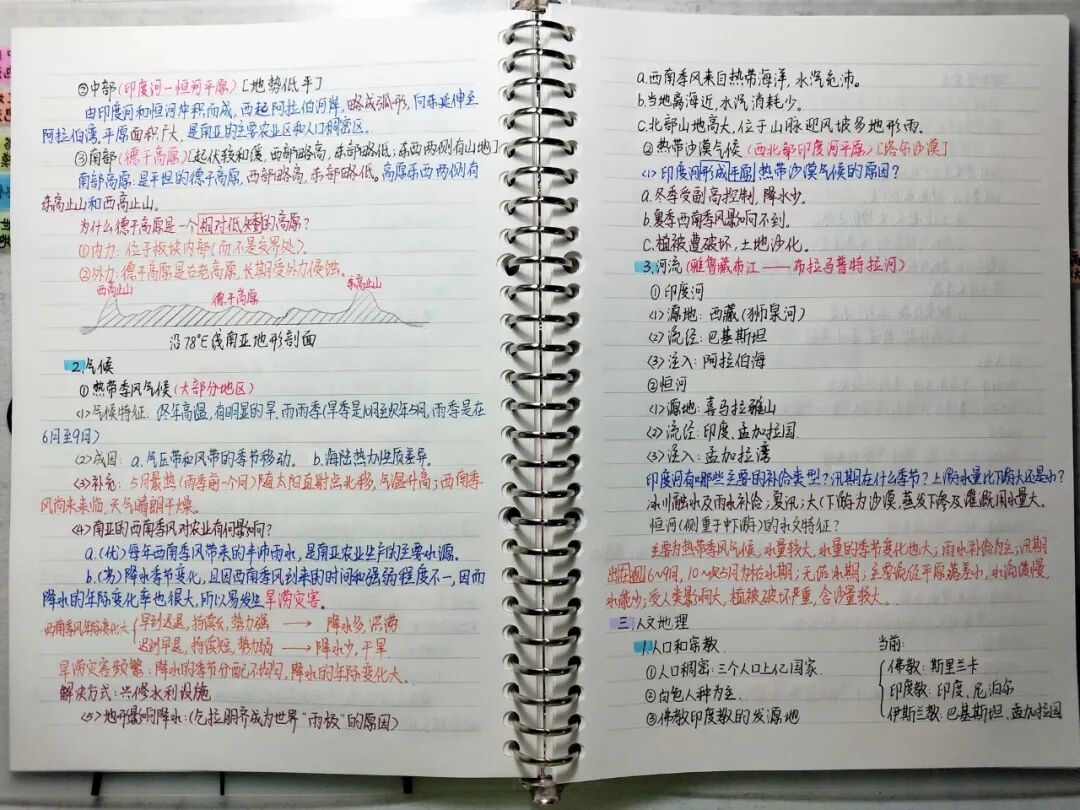 ②中部(印度河—恒河平原)[地势低平]
由印度河和恒河冲积而成,西起阿拉伯海岸,略成弧形,向东延伸至
阿拉伯湾,平原面积广大,是南亚的主要农业区和人口稠密区。
③南部(德干高原)[起伏较和缓,西部略高,东部略低;东西两侧有山地]
南部高原:是平坦的德干高原,西部略高,东部略低。高原东西两侧有
东高止山和西高止山。
为什么德干高原是一个相对低矮的高原?
①内力:位于板块内部(而不是交界处)。
②外力:德干高原是古老高原,长期受外力侵蚀。
西高止山 德干高原 东高止山
沿78°E线南亚地形剖面
2.气候
①热带季风气候(大部分地区)
<1>气候特征:终年高温,有明显的旱、雨雨季(旱季是10月至次年5月,雨季是在
6月至9月)
<2>成因:a.气压带和风带的季节移动。 b.海陆热力性质差异。
<3>补充:5月最热(雨季前一个月)随太阳直射点北移,气温升高;西南季
风尚未来临,天气晴朗干燥。
<4>南亚的西南季风对农业有何影响?
a.(优)每年西南季风带来的丰沛雨水,是南亚农业生产的主要水源。
b.(劣)降水季节变化,且因西南季风到来的时间和强弱程度不一,因而
降水的年际变化率也很大,所以易发生旱涝灾害。
西南季风年际变化大 早到迟退,持续长,势力强 → 降水多,洪涝
迟到早退,持续短,势力弱 → 降水少,干旱
旱涝灾害频繁:降水的季节分配不均匀,降水的年际变化大。
解决方式:兴修水利设施
<5>地形影响降水:(乞拉朋齐成为世界“雨极”的原因)
a.西南季风来自热带海洋,水汽充沛。
b.当地离海近,水汽消耗少。
C.北部山地高大,位于山脉迎风坡多地形雨。
②热带沙漠气候(西北部印度河平原)[塔尔沙漠]
<1>印度河形成平原热带沙漠气候的原因?
a.冬季受副高控制,降水少。
b.夏季西南季风影响不到。
C.植被遭破坏,土地沙化。
3.河流(雅鲁藏布江——布拉马普特拉河)
①印度河
<1>源地:西藏(狮泉河)
<2>流经:巴基斯坦
<3>注入:阿拉伯海
②恒河
<1>源地:喜马拉雅山
<2>流经:印度、孟加拉国
<3>注入:孟加拉湾
印度河有哪些主要的补给类型?汛期在什么季节?上游水量比下游大还是小?
冰川融水及雨水补给;夏汛;大(下游为沙漠,蒸发下渗及灌溉用水量大。
恒河(侧重于中下游)的水文特征?
主要为热带季风气候,水量较大,水量的季节变化也大;雨水补给为主;汛期
出在6~9月,10~次5月为枯水期;无结冰期;主要流经平原落差小,水流缓慢,
水能少;受人类影响大,植被破坏严重,含沙量较大。
三、人文地理
1.人口和宗教
①人口稠密:三个人口上亿国家.
②白色人种为主.
③佛教印度教的发源地
当前:
佛教:斯里兰卡
印度教:印度、尼泊尔
伊斯兰教:巴基斯坦、孟加拉国